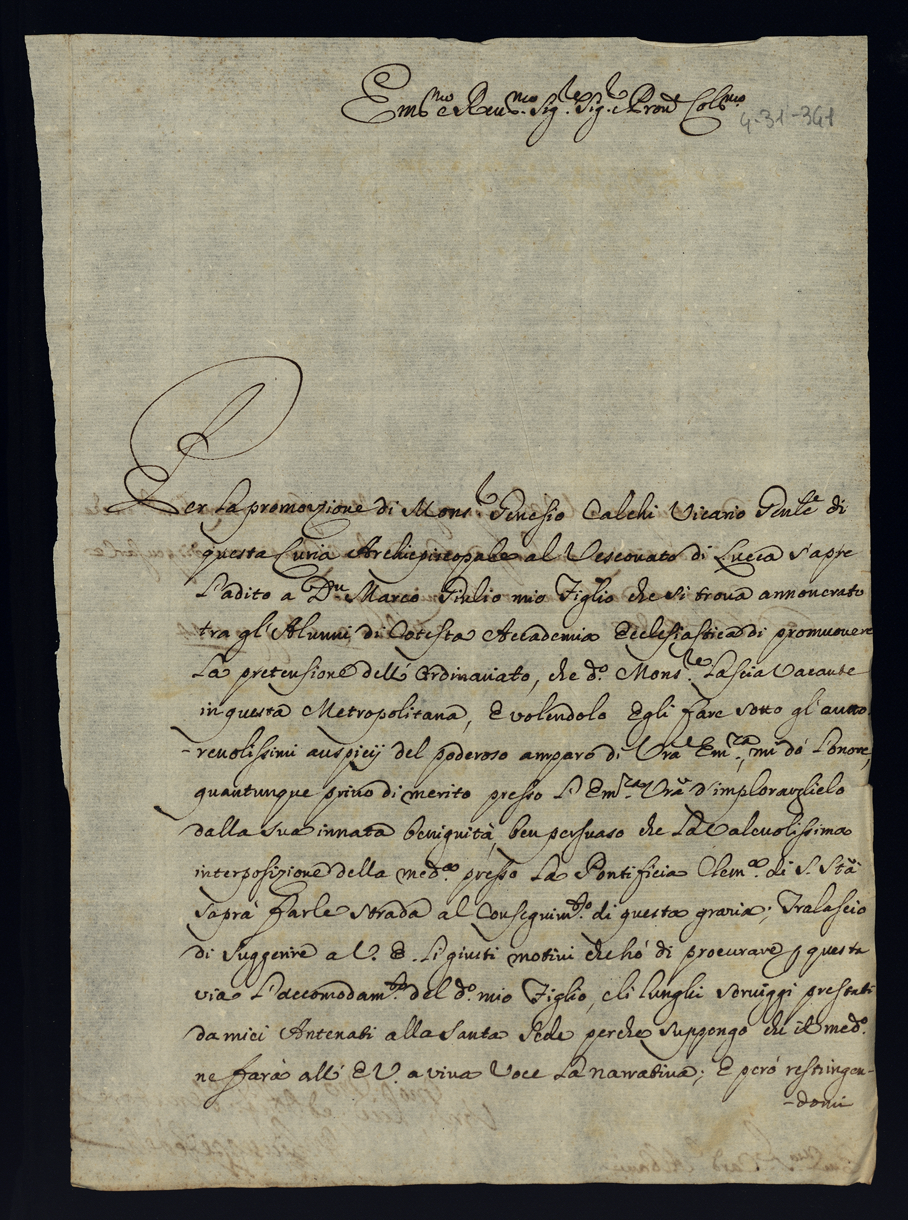 Em.mo e Reu.mo Sig.re Sig.re e Pron.e Col.mo
4-31-341
Per La promozione di Mons.r Genesio Calchi Vicario Gn'le di
questa Curia Archiepiscopale al Vescouato di Lucca s'apre
L'adito a D.n Marco Giulio mio Figlio che si troua annouerato
tra gl'Alunni di Cotesta Accademia Ecclesiastica di promuouere
La pretensione dell'Ordinariato, che d.o Mons.re Lascia Vacante
in questa Metropolitana, E volendolo Egli fare sotto gl'autto-
-reuolissimi auspicij del poderoso amparo di Vra Em.za, mi dó L'onore,
quantunque priuo di merito presso L'Em.za Vra d'implorarglielo
dalla sua innata benignità, ben persuaso che La Valeuolissima
interposizione della med.a presso La Pontificia Clem.a di S. Stà
saprà farle strada al Conseguim.to di questa grazia; Tralascio
di suggerire a V. E. Li giusti motiui che hó di procurare p questa
via L'accomodam.to del d.o mio Figlio, e li lunghi seruiggi prestati
da miei Antenati alla Santa Sede perche suppongo che il med.o
ne farà all'E V. a viua Voce La narratiua; E però restringen-
-domi